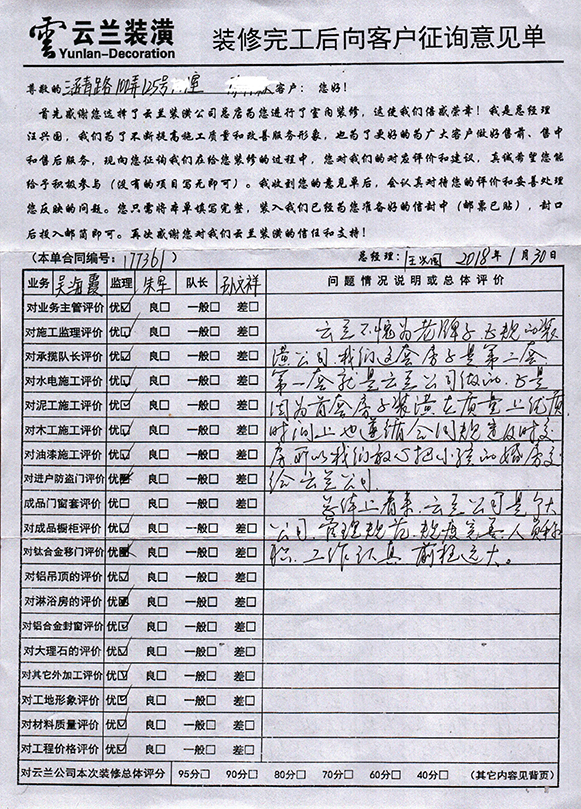 雲 云兰装潢
Yunlan-Decoration
装修完工后向客户征询意见单
尊敬的 涵青路100弄125号 室 客户: 您好!
首先感谢您选择了云兰装潢公司总店为您进行了室内装修,这使我们倍感荣幸!我是总经理
汪兴国,我们为了不断提高施工质量和改善服务形象,也为了更好的为广大客户做好售前、售中
和售后服务,现向您征询我们在给您装修的过程中,您对我们的对应评价和建议,真诚希望您能
给予积极参与(没有的项目写无即可)。我收到您的意见单后,会认真对待您的评价和妥善处理
您反映的问题。您只需将本单填写完整,装入我们已经为您准备好的信封中(邮票已贴),封口
后投入邮筒即可。再次感谢您对我们云兰装潢的信任和支持!
(本单合同编号: 177361 ) 总经理: 汪兴国 2018年1月30日
业务 吴海霞 监理 朱军 队长 孙文祥 问题情况说明或总体评价
对业务主管评价 优☑ 良□ 一般□ 差□
对施工监理评价 优☑ 良□ 一般□ 差□ 云兰不愧为老牌子正规的装
对承揽队长评价 优☑ 良□ 一般□ 差□ 潢公司.我们这套房子是第二套
对水电施工评价 优☑ 良□ 一般□ 差□ 第一套就是云兰公司做的.正是
对泥工施工评价 优☑ 良□ 一般□ 差□ 因为首套房子装潢在质量上优质
对木工施工评价 优☑ 良□ 一般□ 差□ 时间上也遵循合同规定及时交
对油漆施工评价 优☑ 良□ 一般□ 差□ 房所以我们放心把小孩的婚房交
对进户防盗门评价 优☑ 良□ 一般□ 差□ 给云兰公司.
成品门窗套评价 优□ 良□ 一般□ 差□ 总体上看来.云兰公司是个大
对成品橱柜评价 优☑ 良□ 一般□ 差□ 公司.管理规范.制度完善.人员称
对钛合金移门评价 优☑ 良□ 一般□ 差□ 职.工作认真 前程远大。
对铝吊顶的评价 优☑ 良□ 一般□ 差□
对淋浴房的评价 优☑ 良□ 一般□ 差□
对铝合金封窗评价 优☑ 良□ 一般□ 差□
对大理石的评价 优☑ 良□ 一般□ 差□
对其它外加工评价 优☑ 良□ 一般□ 差□
对工地形象评价 优☑ 良□ 一般□ 差□
对材料质量评价 优☑ 良□ 一般□ 差□
对工程价格评价 优☑ 良□ 一般□ 差□
对云兰公司本次装修总体评分 95分□ 90分□ 80分□ 70分□ 60分□ 40分□ (其它内容见背页)